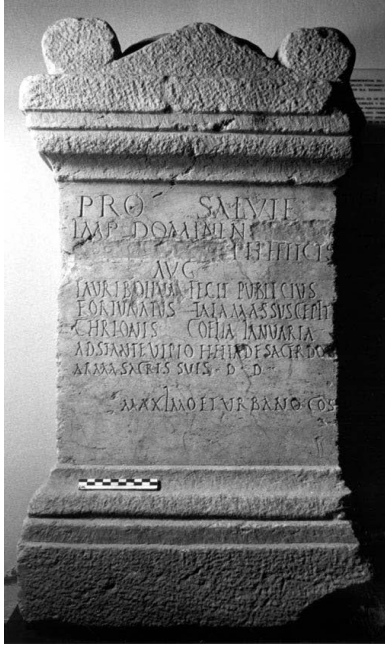 PRO SALVTE
IMP DOMINI N
PII FELICIS
AVG
TAVRIBOLIVM FECIT PVBLICIVS
FORTVNATVS TALAMAS SVSCEPIT
CHRIONIS COELIA IANVARIA
ADSTANTE VLPIO HELIADE SACERDO
ARAM SACRIS SVIS · D · D ·
MAXIMO ET VRBANO · COS